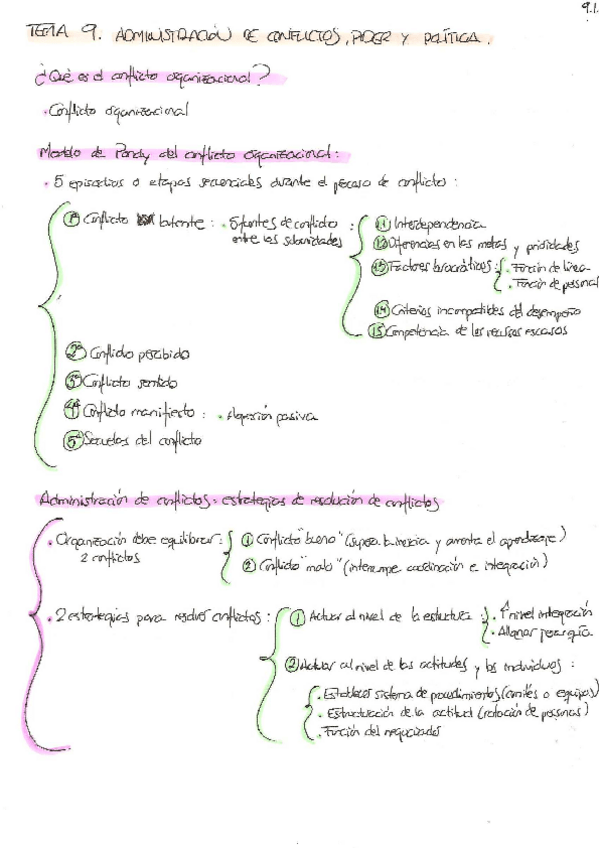 9.1.
TEMA 9. ADMINISTRACIÓN DE CONFLICTOS, PODER Y POLÍTICA.
¿Qué es el conflicto organizacional?
· Conflicto organizacional
Modelo de Pondy del conflicto organizacional:
· 5 episodios o etapas secuenciales durante el proceso de conflicto:
1º Conflicto latente: · 5 fuentes de conflicto entre las subunidades:
1.1 Interdependencia
1.2 Diferencias en las metas y prioridades
1.3 Factores burocráticos: · Función de línea
· Función de personal
1.4 Criterios incompatibles del desempeño
1.5 Competencia de los recursos escasos
2º Conflicto percibido
3º Conflicto sentido
4º Conflicto manifiesto: · Agresión pasiva
5º Secuelas del conflicto
Administración de conflictos: estrategias de resolución de conflictos
· Organización debe equilibrar 2 conflictos:
1 Conflicto "bueno" (supera la inercia y aumenta el aprendizaje)
2 Conflicto "malo" (interrumpe coordinación e integración)
· 2 estrategias para resolver conflictos:
1 Actuar al nivel de la estructura: · ↑ nivel integración
· Allanar jerarquía
2 Actuar al nivel de las actitudes y los individuos:
· Establecer sistema de procedimientos (comités o equipos)
· Estructuración de la actitud (rotación de personas)
· Función del negociador